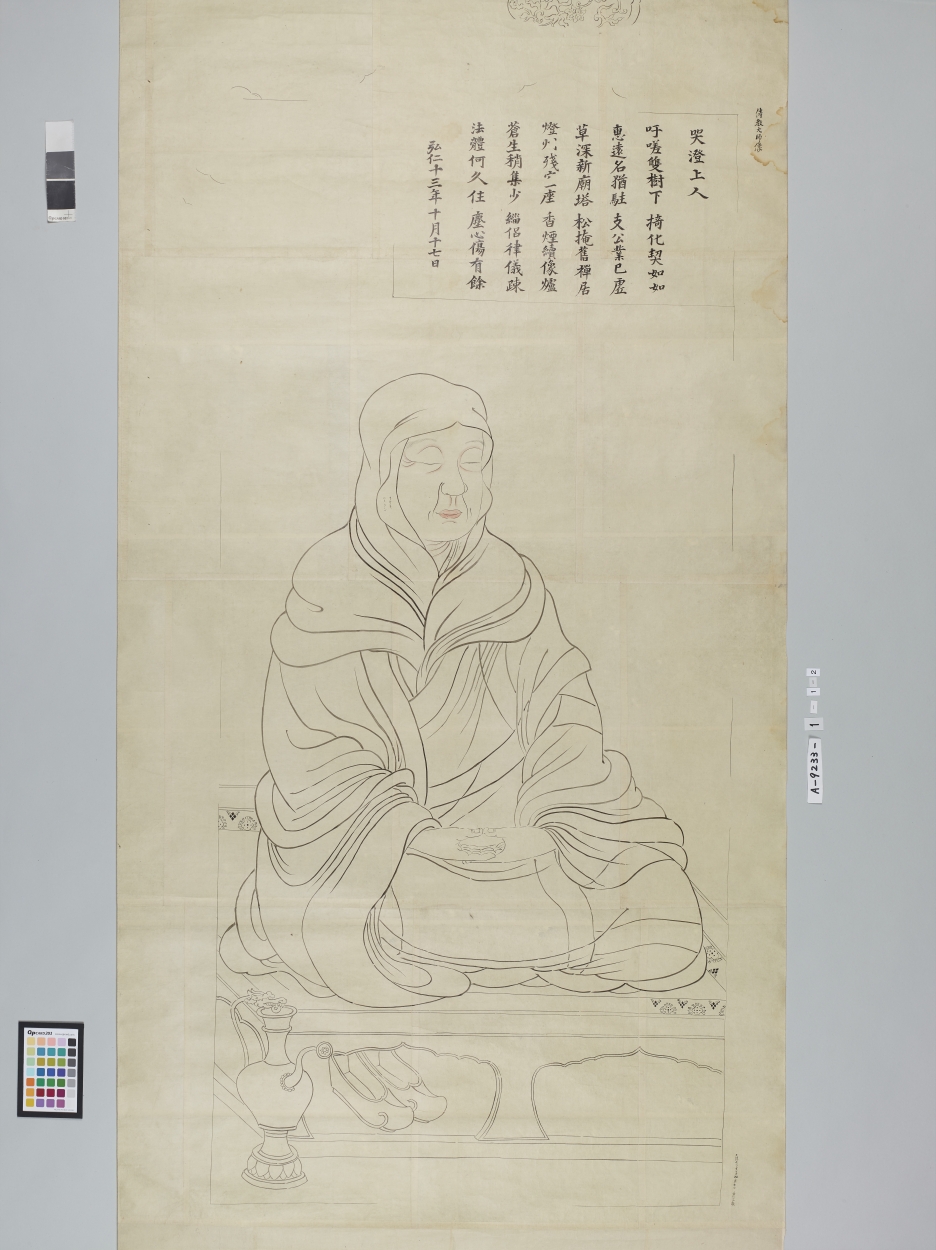 傳教大師像
哭澄上人
吁嗟雙樹下 化契如如
惠遠名猶駐 支公業已虛
草深新廟塔 松掩舊禪居
燈 殘 座 香煙續像爐
蒼生稍集少 緇侶律儀疎
法體何久住 塵心傷有餘
弘仁十三年十月十七日
A-9233-1-1-2